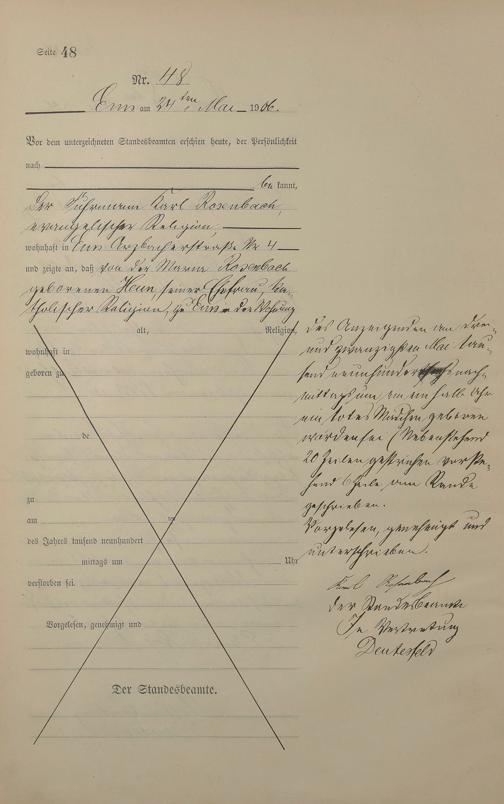 Seite 48
Nr. 48
Ems am 24ten Mai 1906.
Vor dem unterzeichneten Standesbeamten erschien heute, der Persönlichkeit
nach
be kannt,
der Fuhrmann Karl Rosenbach,
evangelischer Religion,
wohnhaft in Ems Arzbacherstraße Nr 4
und zeigte an, daß von der Maria Rosenbach
geborenen Heun, seiner Ehefrau, ka-
tholischer Religion, zu Ems in der Wohnung
alt, Religion,
wohnhaft in
geboren zu
de
zu
am
des Jahres tausend neunhundert
mittags um Uhr
verstorben sei.
Vorgelesen, genehmigt und
Der Standesbeamte.
des Anzeigenden am drei-
und zwanzigsten Mai tau-
send neunhundert sechs nach-
mittags um ein halb Uhr
ein totes Mädchen geboren
worden sei. (Nebenstehend
20 Zeilen gestrichen vorste-
hend 6 Zeile am Rande
geschrieben.
Vorgelesen, genehmigt und
unterschrieben.
Karl Rosenbach
Der Standesbeamte
In Vertretung